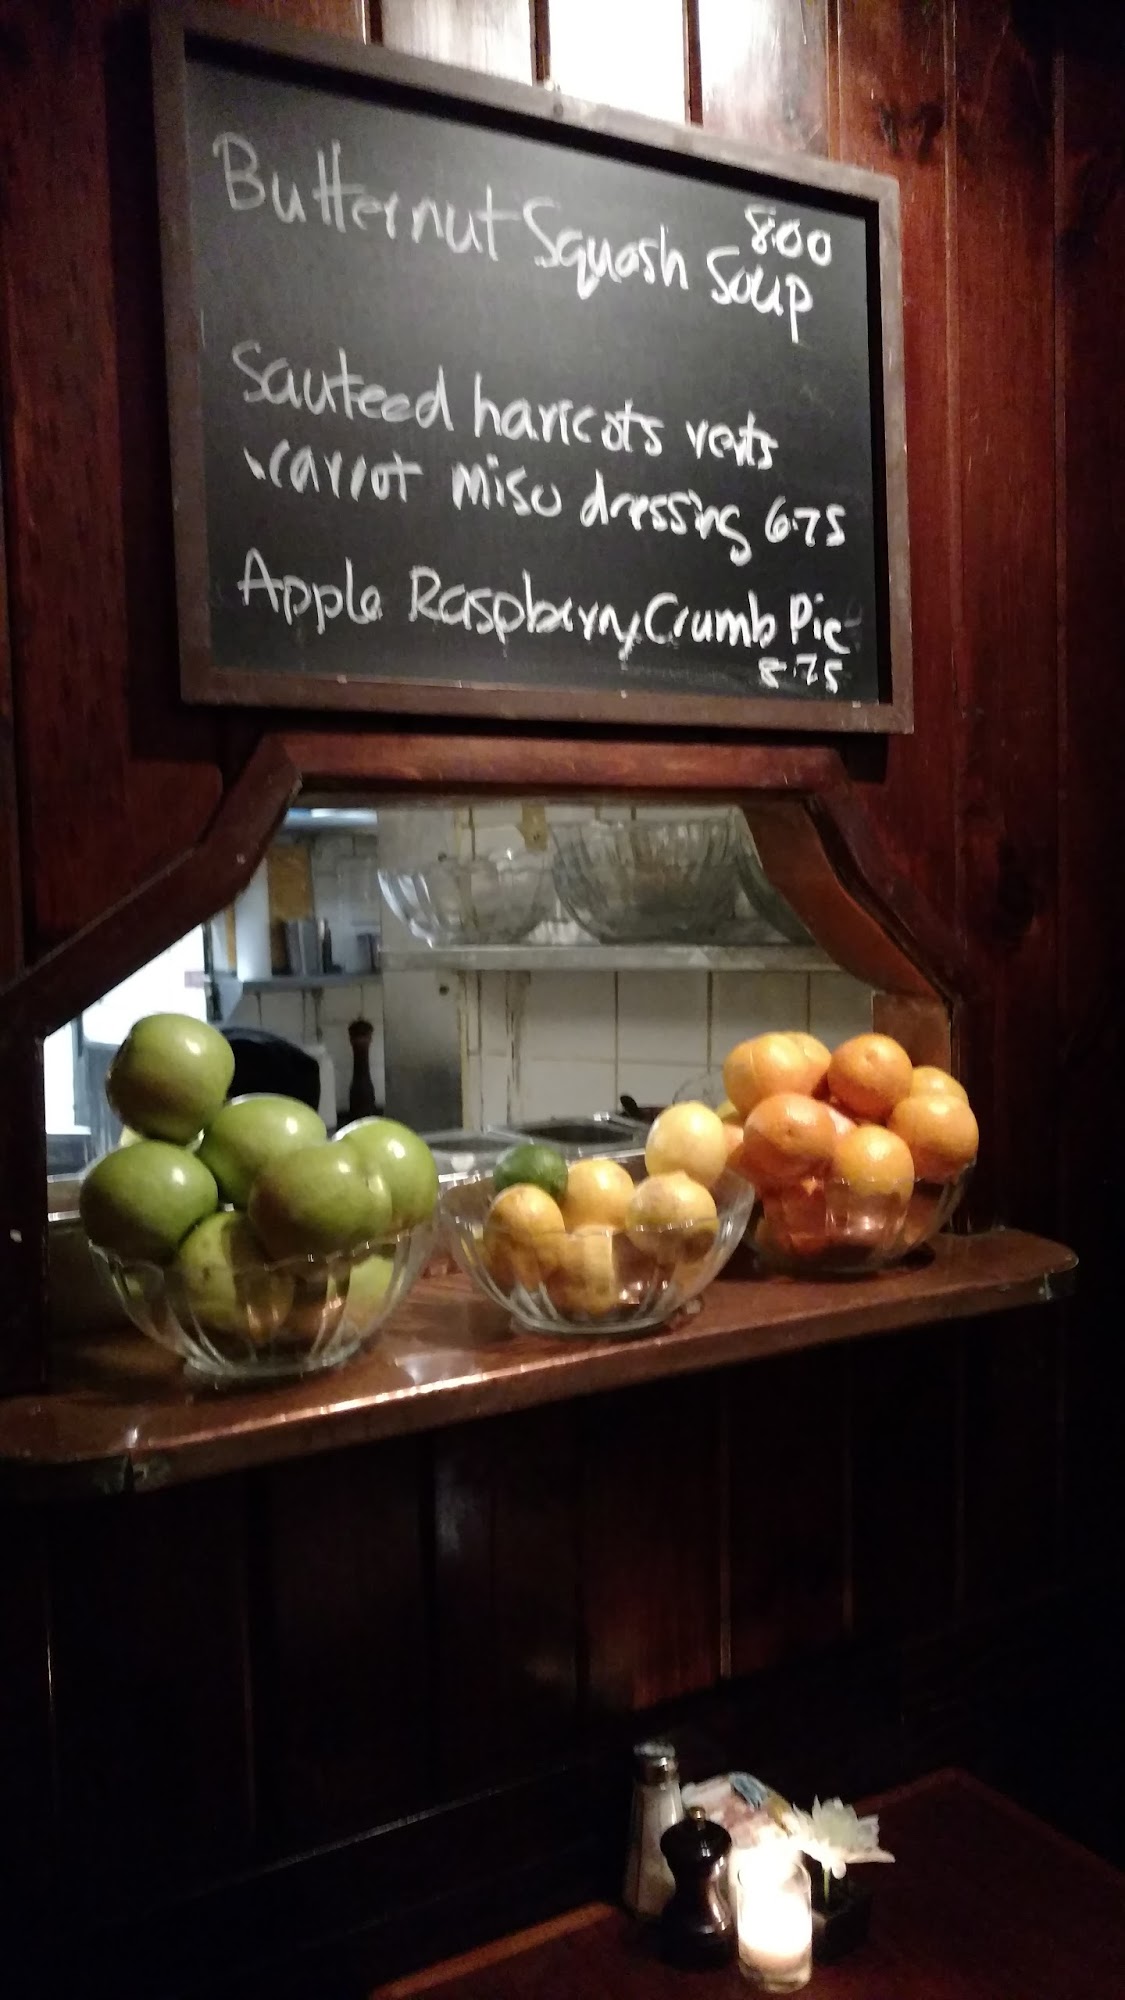 Butternut Squash Soup
8.00
Sauteed haricots verts
carrot miso dressing 6.75
Apple Raspberry Crumb Pie
8.75